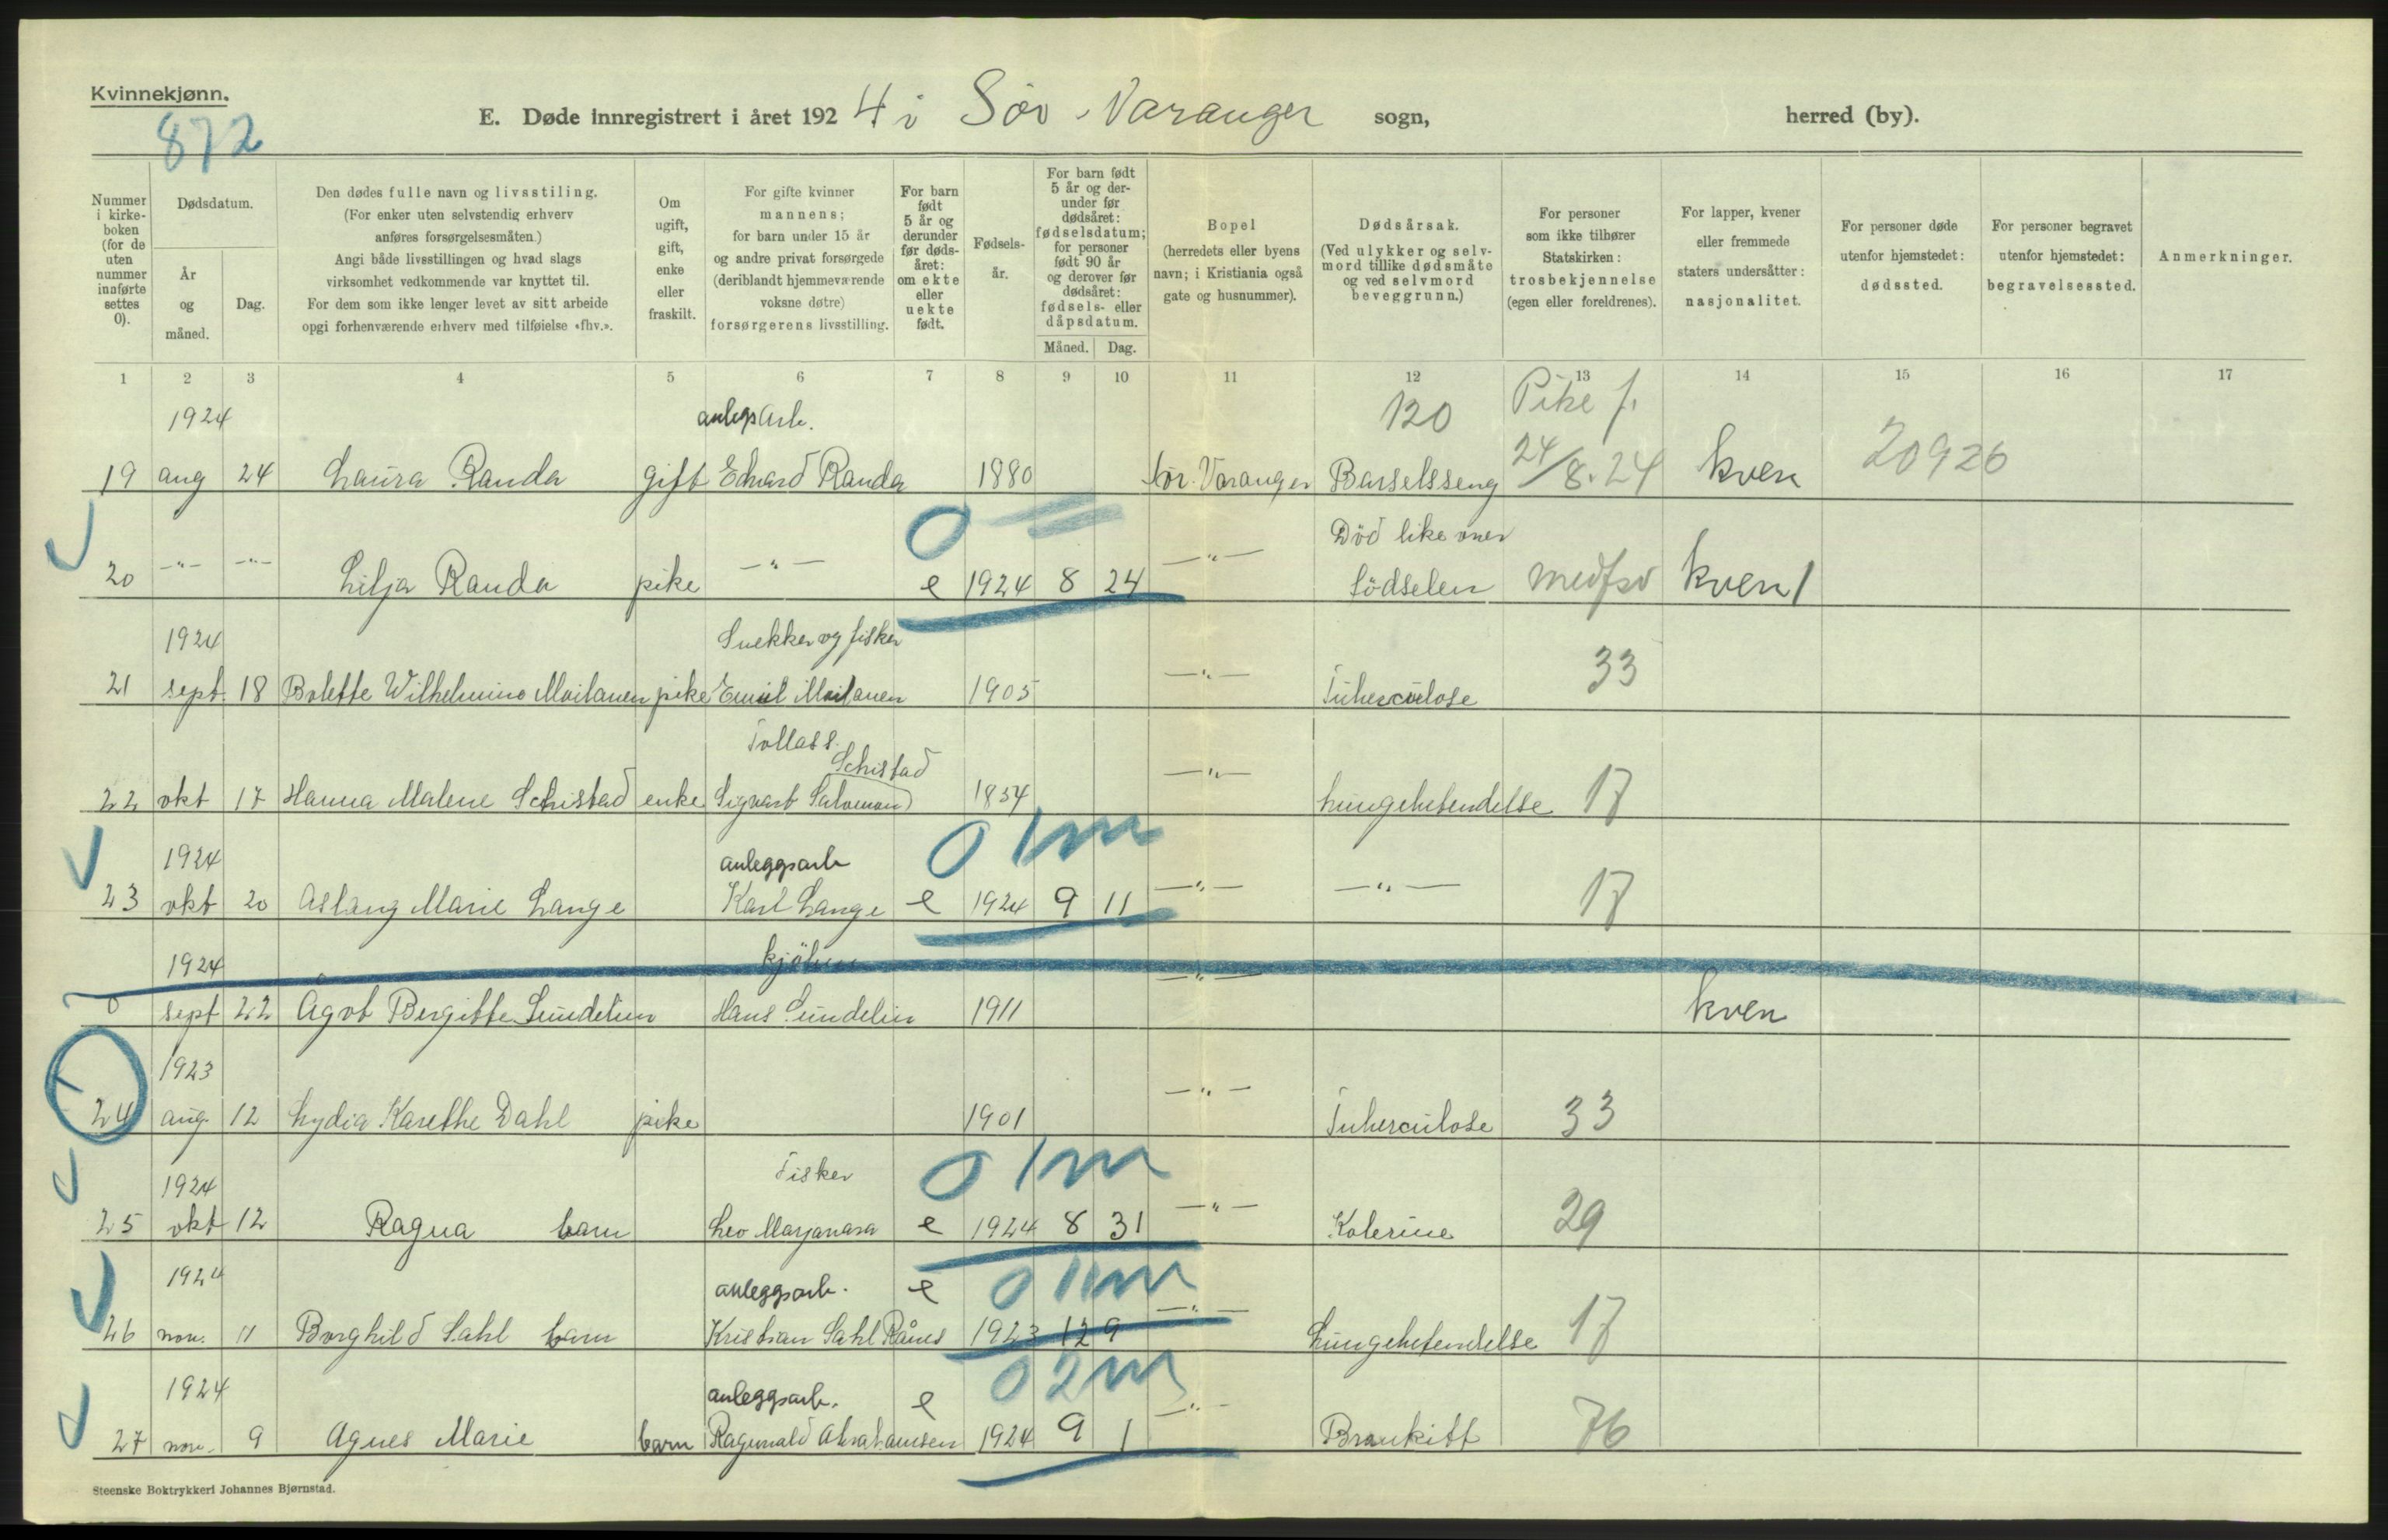 Kvinnekjønn.
872
E. Døde innregistrert i året 1924 i Sör-Varanger sogn, herred (by).
Nummer i kirke- boken (for de uten nummer innførte settes 0).
Dødsdatum.
År og måned.
Dag.
Den dødes fulle navn og livsstiling.
(For enker uten selvstendig erhverv
anføres forsørgelsesmåten.)
Angi både livsstillingen og hvad slags
virksomhet vedkommende var knyttet til.
For dem som ikke lenger levet av sitt arbeide
opgi forhenværende erhverv med tilføielse «fhv.».
Om ugift, gift, enke eller fraskilt.
For gifte kvinner
mannens;
for barn under 15 år
og andre privat forsørgede
(deriblandt hjemmeværende
voksne døtre)
forsørgerens livsstilling.
For barn født 5 år og derunder før døds- året: om ekte eller uekte født.
Fødsels- år.
For barn født 5 år og der- under før dødsåret: fødselsdatum; for personer født 90 år og derover før dødsåret: fødsels- eller dåpsdatum.
Måned. Dag.
Bopel
(herredets eller byens
navn; i Kristiania også
gate og husnummer).
Dødsårsak.
(Ved ulykker og selv-
mord tillike dødsmåte
og ved selvmord
beveggrunn.)
For personer
som ikke tilhører
Statskirken:
trosbekjennelse
(egen eller foreldrenes).
For lapper, kvener
eller fremmede
staters undersåtter:
nasjonalitet.
For personer døde
utenfor hjemstedet:
dødssted.
For personer begravet
utenfor hjemstedet:
begravelsessted.
Anmerkninger.
1 2 3 4 5 6 7 8 9 10 11 12 13 14 15 16 17
1924 anlegsarb. 120 Pike f.
19 aug 24 Laura Randa gift Edvard Randa 1880 Sör. Varanger Barselsseng 24/8.24 kven 20926
0 Död like over
20 -"- -"- Lilja Randa pike -"- e 1924 8 24 -"- födselen medfsv kven 1
1924 Snekker og fisker
21 sept. 18 Bolette Wilhelmine Moilanen pike Emil Moilanen 1905 -"- Tuberculose 33
Tollass. Schistad
22 okt 17 Hanna Malene Schistad enke Sigvart Salomon 1854 -"- Lungebetendelse 17
0 1m
1924 anleggsarb
23 okt 20 Aslaug Marie Lange Karl Lange e 1924 9 11 -"- -"- 17
1924
0 sept 22 Ågot Bergitte Sundelin Hans Sundelin 1911 -"- kven
1923
24 aug. 12 Lydia Karethe Dahl pike 1901 -"- Tuberculose 33
1924 Fisker 0 1m
25 okt 12 Ragna barn Leo Marjavara e 1924 8 31 -"- Kolerine 29
1924 anleggsarb. e 0 11m
26 nov. 11 Borghild Dahl barn Kristian Dahl Rånes 1923 12 9 -"- Lungebetendelse 17
1924 anleggsarb. e 0 2m
27 nov. 9 Agnes Marie barn Ragnvald Abrahamsen 1924 9 1 -"- Bronkitt 76
Steenske Boktrykkeri Johannes Bjørnstad.